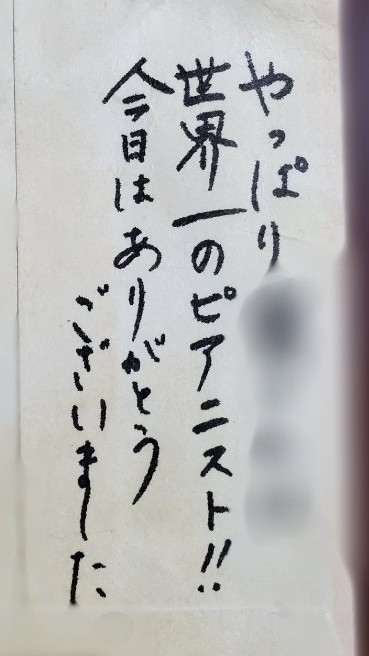 やっぱり
世界一のピアニスト!!
今日はありがとう
ございました